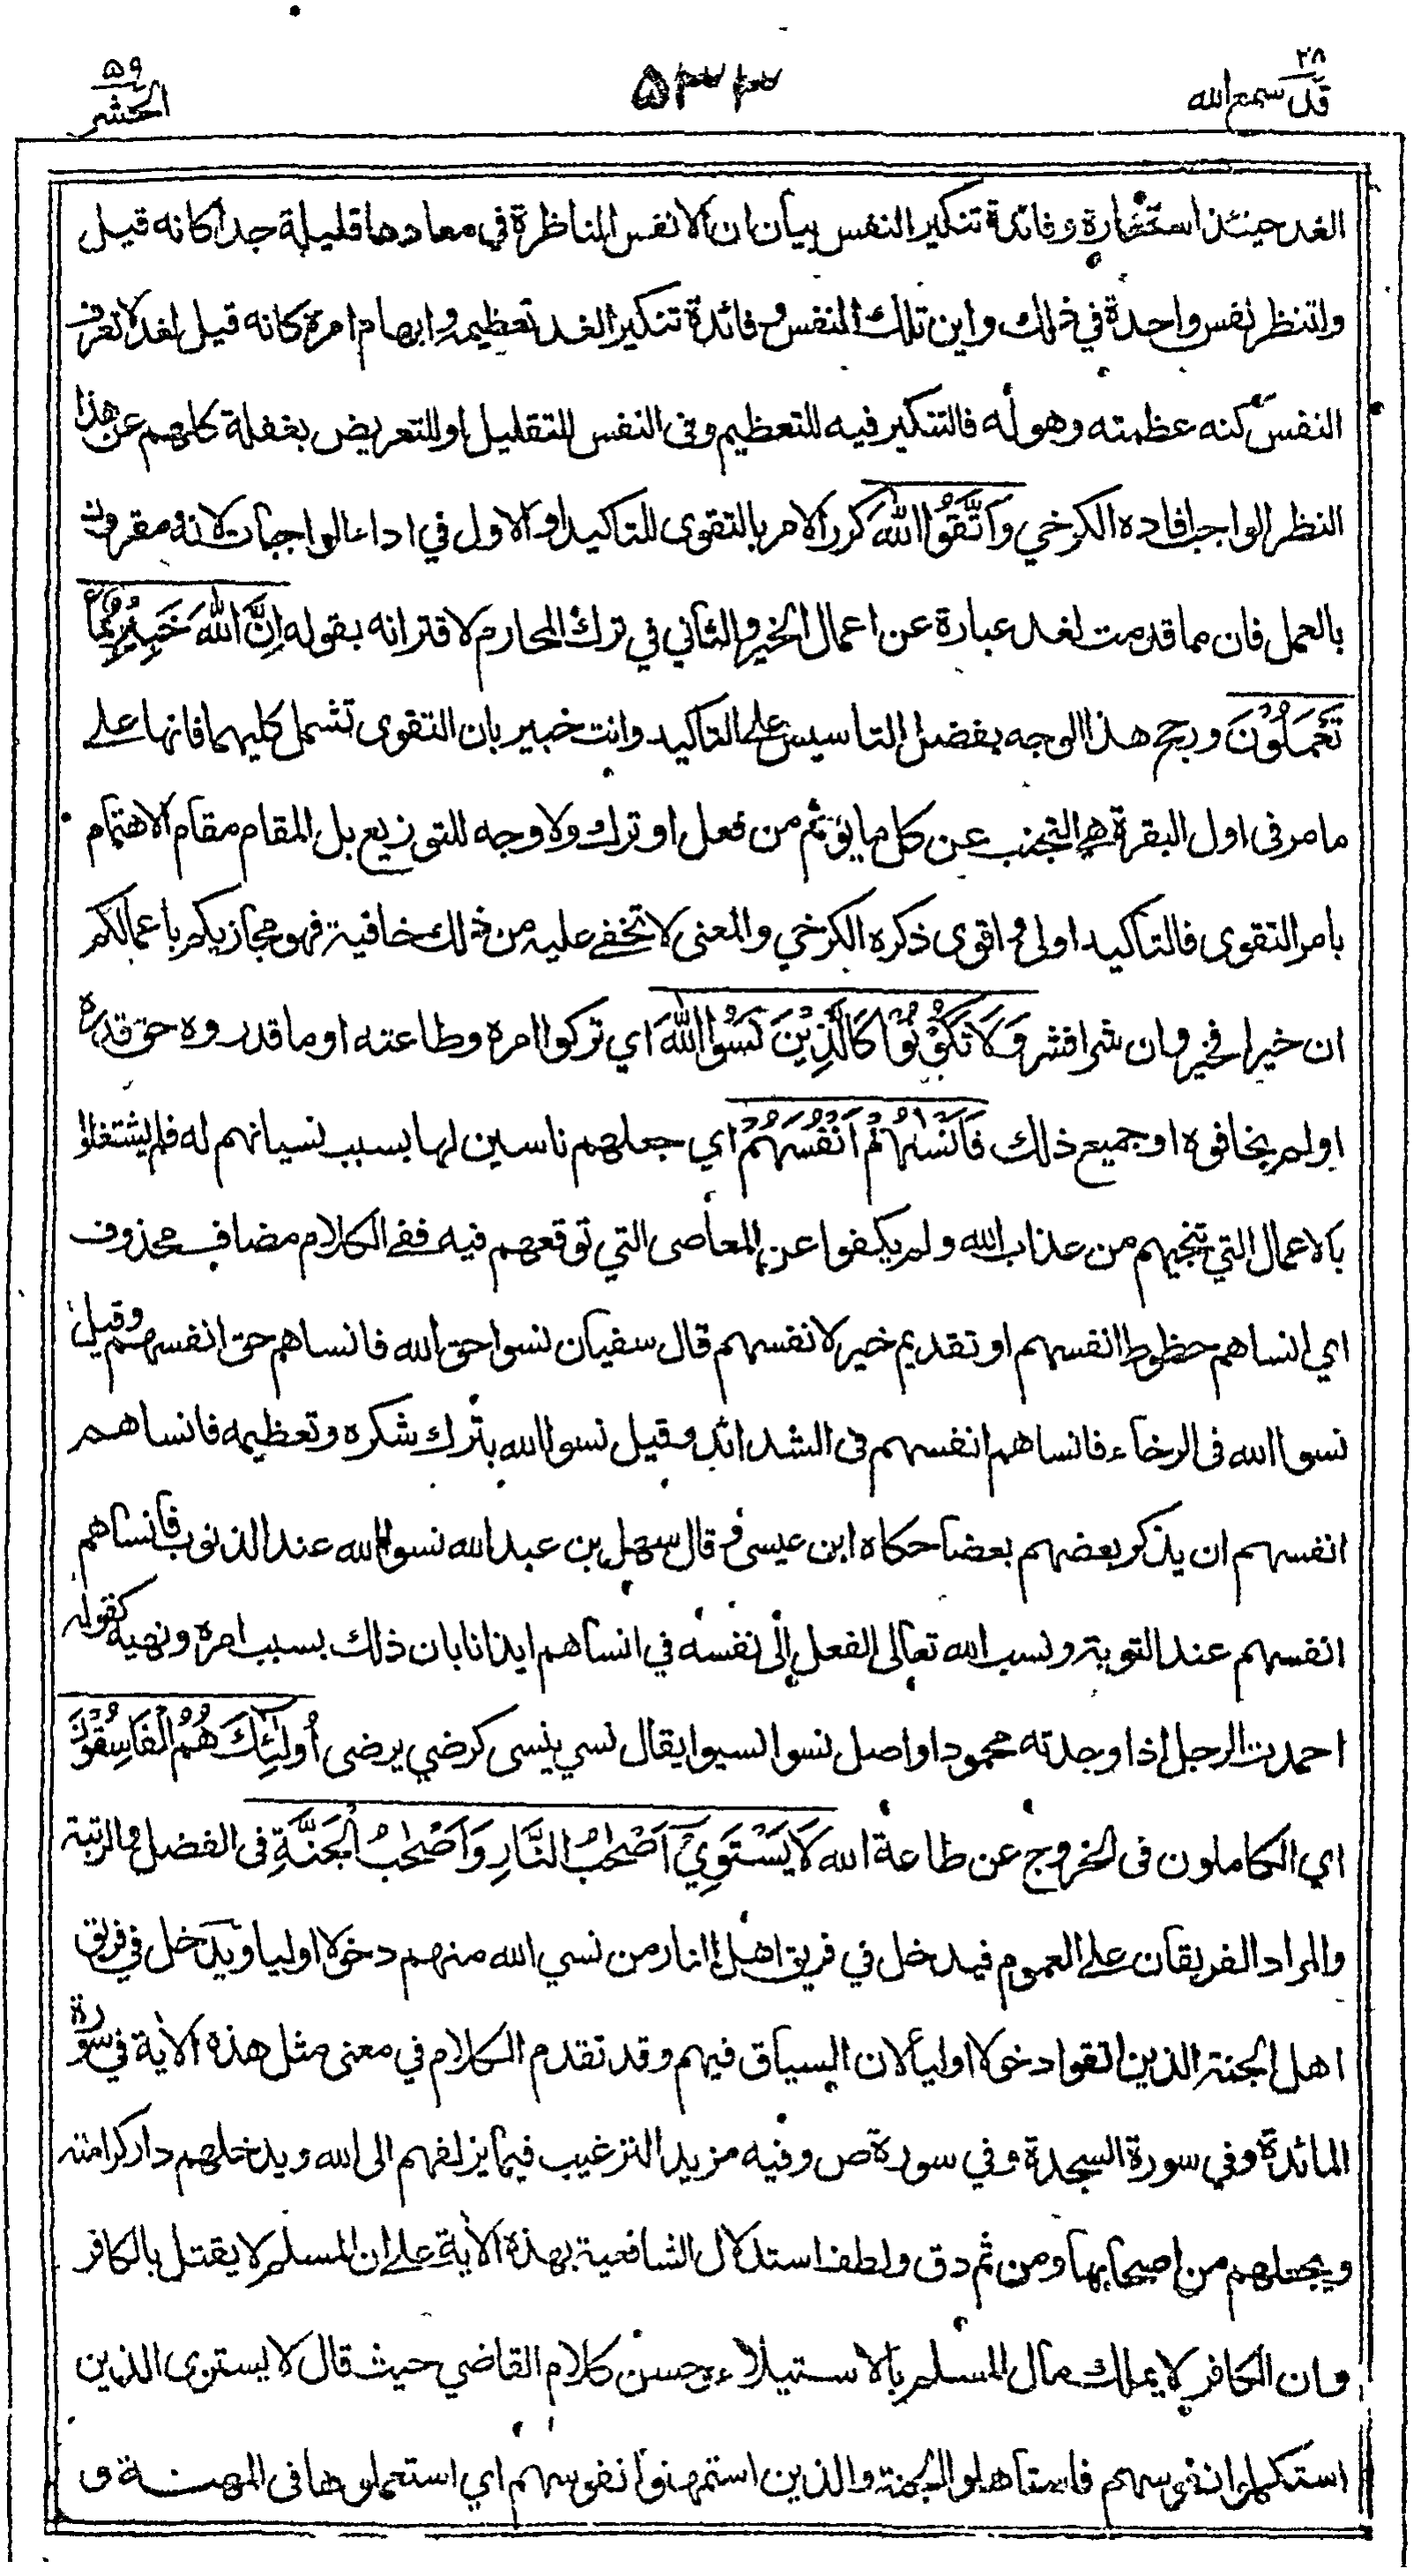 ٢٨
قد سمع الله
٥٣٣
٥٩
الحشر
الغد حينئذ استعارة وفائدة تنكير النفس بيان ان الانفس الناظرة في معادها قليلة جدا كانه قيل
ولتنظر نفس واحدة في ذلك واين تلك النفس وفائدة تنكير الغد تعظيمه وابهام امره كانه قيل لغد لا تعرف
النفس كنه عظمته وهوله فالتنكير فيه للتعظيم وفى النفس للتقليل او للتعريض بغفلة كلهم عن هذا
النظر الواجب افاده الكرخي وَاتَّقُوا اللّٰهَ كرر الامر بالتقوى للتاكيد او الاول في اداء الواجبات لانه مقرون
بالعمل فان ما قدمت لغد عبارة عن اعمال الخير والثاني في ترك المحارم لاقترانه بقوله اِنَّ اللّٰهَ خَبِيْرٌۢ بِمَا
تَعْمَلُوْنَ ورجح هذا الوجه بفضل التاسيس على التاكيد وانت خبير بان التقوى تشمل كليهما فانها على
ما مر فى اول البقرة هي التجنب عن كل ما يؤثم من فعل او ترك ولا وجه للتوزيع بل المقام مقام الاهتمام
بامر التقوى فالتاكيد اولى واقوى ذكره الكرخي والمعنى لا تخفى عليه من ذلك خافية فهو مجازيكم باعمالكم
ان خيرا فخير وان شرا فشر وَلَا تَكُوْنُوْا كَالَّذِيْنَ نَسُوا اللّٰهَ اي تركوا امره وطاعته او ما قدروه حق قدره
او لم يخافوه او جميع ذلك فَاَنْسٰهُمْ اَنْفُسَهُمْ اي جعلهم ناسين لها بسبب نسيانهم له فلم يشتغلوا
بالاعمال التي تنجيهم من عذاب الله ولم يكفوا عن المعاصى التي توقعهم فيه ففى الكلام مضاف محذوف
اي انساهم حظوظ انفسهم او تقديم خير لانفسهم قال سفيان نسوا حق الله فانساهم حق انفسهم وقيل
نسوا الله فى الرخاء فانساهم انفسهم فى الشدائد وقيل نسوا الله بترك شكره وتعظيمه فانساهم
انفسهم ان يذكر بعضهم بعضا حكاه ابن عيسى وقال سهل بن عبد الله نسوا الله عند الذنوب فانساهم
انفسهم عند التوبة ونسب الله تعالى الفعل الى نفسه في انساهم ايذانا بان ذلك بسبب امره ونهيه كقوله
احمدت الرجل اذا وجدته محمودا واصل نسوا نسيوا يقال نسي ينسى كرضي يرضى اُولٰٓئِكَ هُمُ الْفَاسِقُوْنَ
اي الكاملون فى الخروج عن طاعة الله لَا يَسْتَوِيْٓ اَصْحٰبُ النَّارِ وَاَصْحٰبُ الْجَنَّةِ فى الفضل والرتبة
والمراد الفريقان على العموم فيدخل في فريق اهل النار من نسي الله منهم دخولا اوليا ويدخل في فريق
اهل الجنة الذين اتقوا دخولا اوليا لان السياق فيهم وقد تقدم الكلام في معنى مثل هذه الاية في سورة
المائدة وفي سورة السجدة وفي سورة ص وفيه مزيد الترغيب فيما يزلفهم الى الله ويدخلهم دار كرامته
ويجعلهم من اصحابها ومن ثم دق ولطف استدلال الشافعية بهذه الاية على ان المسلم لا يقتل بالكافر
وان الكافر لا يملك مال المسلم بالاستيلاء وحسن كلام القاضي حيث قال لا يستوى الذين
استكملوا نفوسهم فاستاهلوا الجنة والذين استمهنوا نفوسهم اي استعملوها فى المهنة و